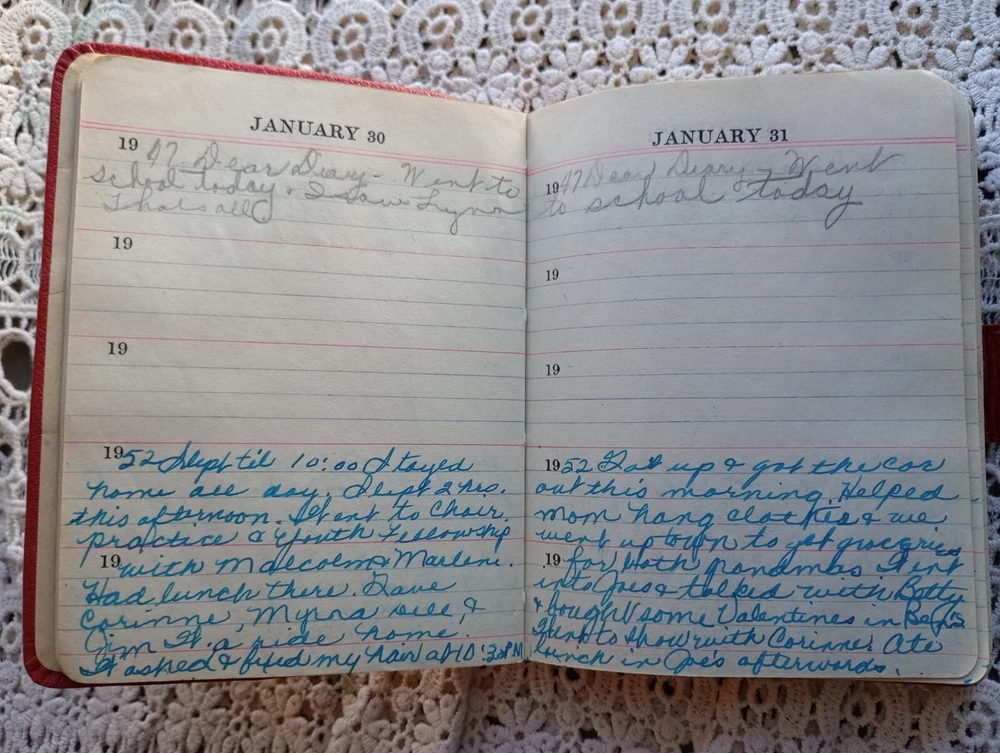 JANUARY 30
1947 Dear Diary - Went to
school today. I saw Lynn
Thats all
19
19
1952 Slept til 10:00 Stayed
home all day. Slept 2 hrs.
this afternoon. Went to Choir
practice & Youth Fellowship
19 with Malcolm & Marlene.
Had lunch there. Gave
Corinne, Myrna Dell, &
Jim H. a ride home.
Washed & fixed my hair at 10:30 P.M.
JANUARY 31
1947 Dear Diary - Went
to school today
19
19
1952 Got up & got the car
out this morning. Helped
mom hang clothes & we
went uptown to get groceries
19 for both grandmas Went
into Joes & talked with Betty
& bought some Valentines in
Went to Show with Corinne. Ate
lunch in Joe's afterwards.